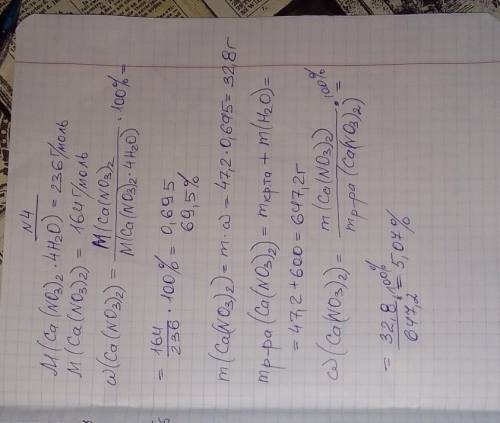 N4
M(Ca(NO3)2·4H2O) = 236 г/моль
M(Ca(NO3)2) = 164 г/моль
ω(Ca(NO3)2) = M(Ca(NO3)2 / M(Ca(NO3)2·4H2O) · 100% =
= 164/236 · 100% = 0,695
69,5%
m(Ca(NO3)2) = m·ω = 47,2·0,695 = 32,8г
mр-ра(Ca(NO3)2) = mкр-та + m(H2O) =
= 47,2 + 600 = 647,2г
ω(Ca(NO3)2) = m(Ca(NO3)2) / mр-ра(Ca(NO3)2) · 100% =
= 32,8/647,2 · 100% = 5,07%